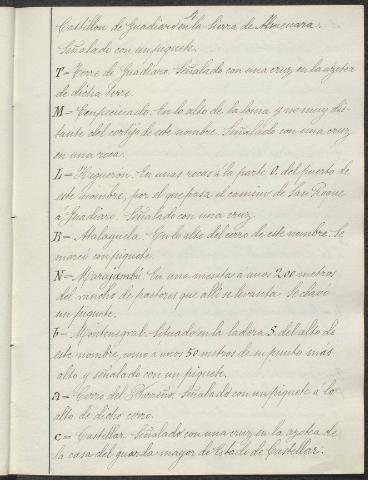 4
Castillon de Guadiaro en la Sierra de Almenara.
Señalado con un piquete.
T = Torre de Guadiaro. Señalado con una cruz en la azotea
de dicha torre.
M = En lo alto de la loma y no muy dis-
tante del cortijo de este nombre. Señalado con una cruz
en una roca.
L = Higueron. En unas rocas à la parte O. del puerto de
este nombre, por el que pasa el camino de San Roque
à Guadiaro. Señalado con una cruz.
R = Atalayuela. En lo alto del cerro de este nombre. Se
marcó con piquete.
N = Marajambú. En una meseta à unos 200 metros
del rancho de pastores que allí se levanta. Se clavó
un piquete.
b = Montenegral. Situado en la ladera S. del alto de
este nombre, como à unos 50 metros de su punto más
alto y señalado con un piquete.
a = Cerro del Señalado con un piquete à lo
alto de dicho cerro.
c = Castellar. Señalado con una cruz en la azotea de
la casa del guarda mayor de Estado de Castellar.